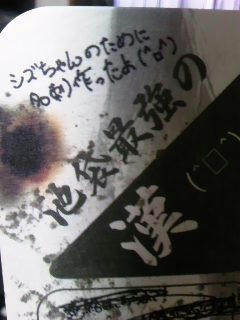 シズちゃんのために
名刺作ったよ(^o^)
池袋最強の
漢
(^□^)